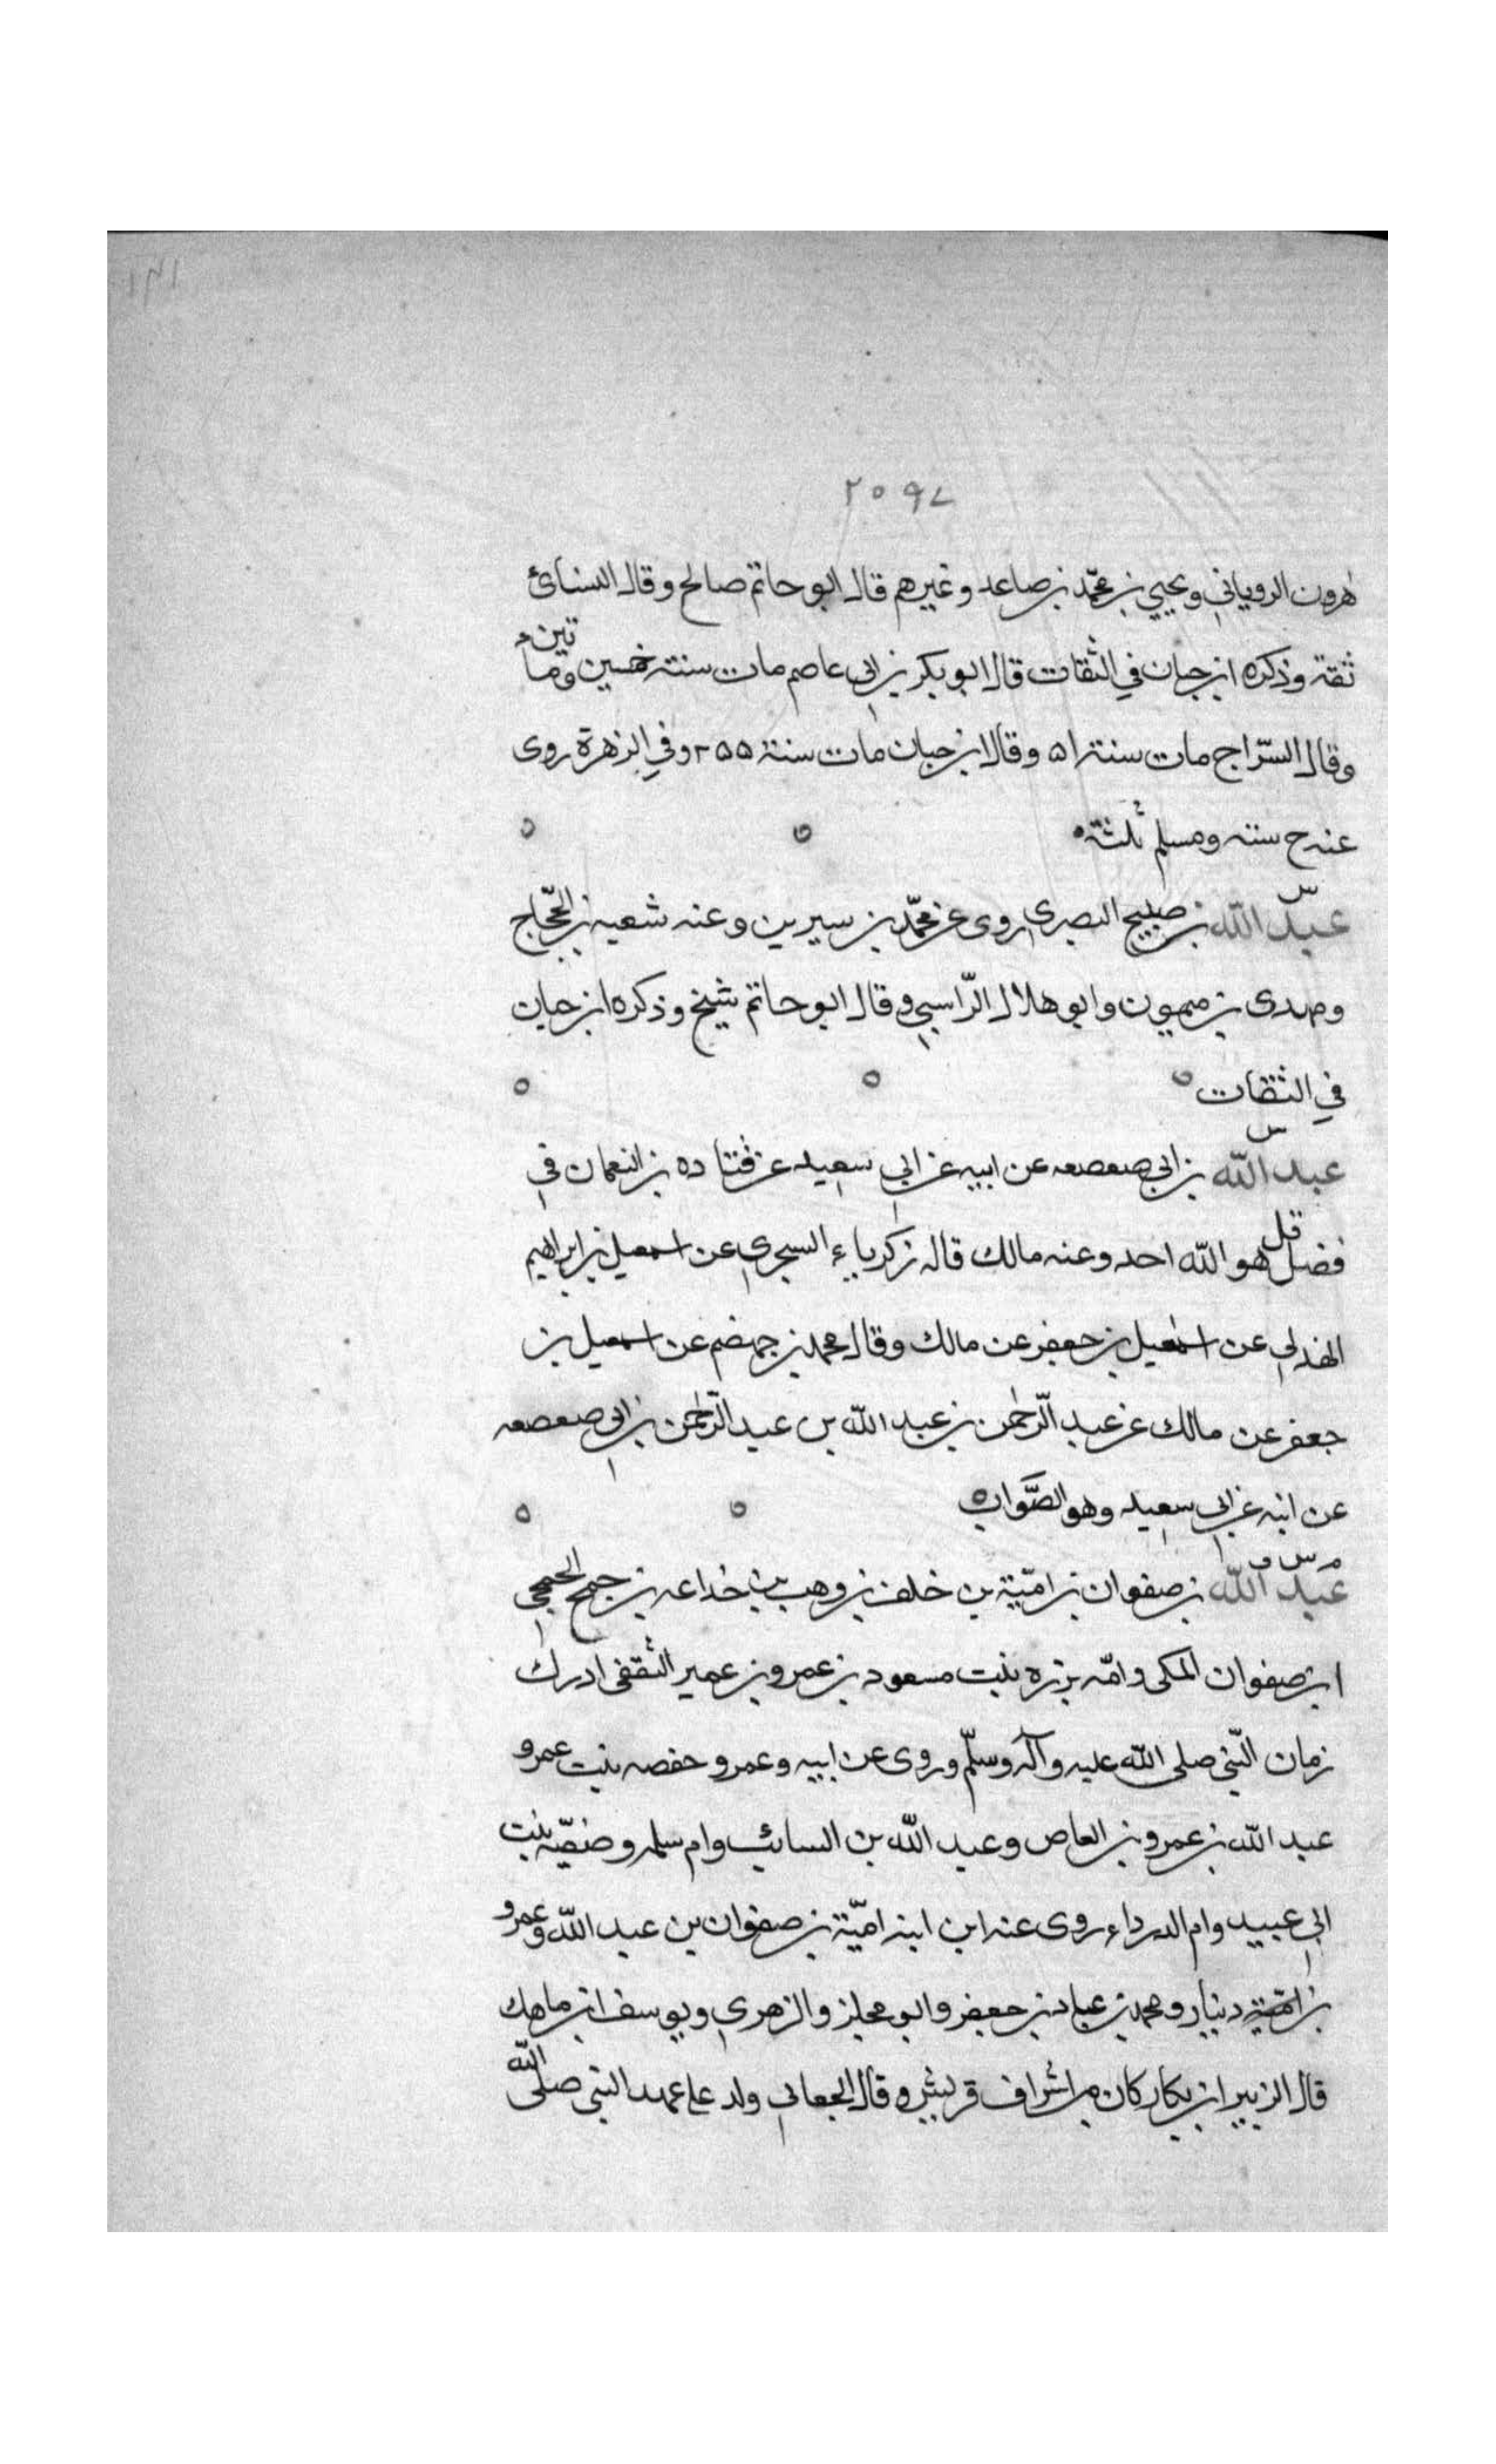 ٢٥٩٧
هرون الروياني ويحيي بن محمّد بن صاعد وغيرهم قال ابو حاتم صالح وقال النسائ
ثقة وذكره ابن حبان في الثقات قال ابو بكر بن ابي عاصم مات سنة خمسين وماتين
وقال السّراج مات سنة ٥١ وقال ابن حبان مات سنة ٢٥٥ وفي الزهرة روى
عنه خ ستة ومسلم ثلثة
عبد الله بن صبيح البصري روى عن محمّد بن سيرين وعنه شعبه بن الحجّاج
ومهدى بن ميمون وابو هلال الرّاسبي وقال ابو حاتم شيخ وذكره ابن حبان
في الثقات
س
عبد الله بن ابي صعصعه عن ابيه عن ابي سعيد عن قتاده بن النعمان في
فضل قل هو الله احد وعنه مالك قاله زكرياء السجزي عن اسمعيل بن ابراهيم
الهذلي عن اسمعيل بن جعفر عن مالك وقال محمد بن جهضم عن اسمعيل بن
جعفر عن مالك عن عبد الرّحمن بن عبد الله بن عبد الرّحمن بن ابي صعصعه
عن ابيه عن ابي سعيد وهو الصّواب
م س ق
عبد الله بن صفوان بن اميّة بن خلف بن وهب بن خداعه بن جمح الجمحي
ابن صفوان المكى وامّه برزه بنت مسعود بن عمرو بن عمير الثقفى ادرك
زمان النّبي صلى الله عليه وآله وسلّم وروى عن ابيه وعمر و حفصه بنت عمر و
عبد الله بن عمرو بن العاص وعبد الله بن السائب وام سلمه وصفيّه بنت
ابي عبيد وام الدرداء روى عنه ابن ابنه اميّة بن صفوان بن عبد الله وعمرو
بن دينار ومحمد بن عباد بن جعفر وابو مجلز والزهري ويوسف ابن ماهك
قال الزبير ابن بكار كان من اشراف قريش وقال الجعابي ولد على عهد النبي صلى الله